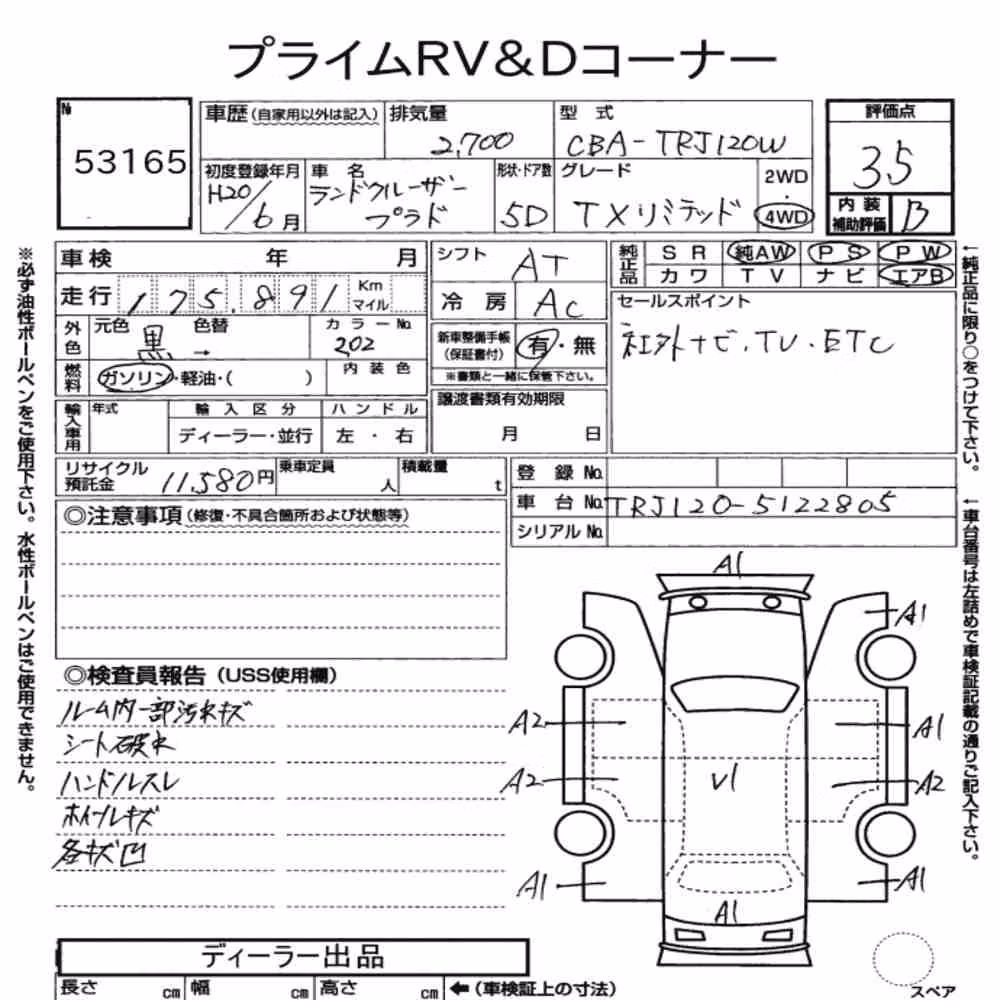 プライムRV&Dコーナー
№ 53165
車歴(自家用以外は記入) 排気量 2,700 型式 CBA-TRJ120W
評価点 3.5
初度登録年月 H20/6月 車名 ランドクルーザー プラド 形状・ドア数 5D グレード TXリミテッド 2WD・4WD
内装補助評価 B
車検 年 月
走行 175,891 Km マイル
外色 元色 黒 色替 → カラーNo. 202
燃料 ガソリン・軽油・( ) 内装色
輸入車用 年式 輸入区分 ディーラー・並行 ハンドル 左・右
シフト AT
冷房 AC
新車整備手帳(保証書付) 有・無
※書類と一緒に保管下さい。
譲渡書類有効期限 月 日
純正品 SR 純AW PS PW
カワ TV ナビ エアB
セールスポイント
社外ナビ.TV.ETC
リサイクル預託金 11,580円 乗車定員 人 積載量 t
登録No.
車台No. TRJ120-5122805
シリアルNo.
◎注意事項(修復・不具合箇所および状態等)
◎検査員報告(USS使用欄)
ルーム内一部汚れキズ
シート破れ
ハンドルスレ
ホイールキズ
各キズ凹
A1
A1
A2
A1
A2
V1
A2
A1
A1
A1
スペア
ディーラー出品
長さ cm 幅 cm 高さ cm ←(車検証上の寸法)
※必ず油性ボールペンをご使用下さい。水性ボールペンはご使用できません。
←純正品に限り○をつけて下さい。
←車台番号は左詰めで車検証記載の通りご記入下さい。